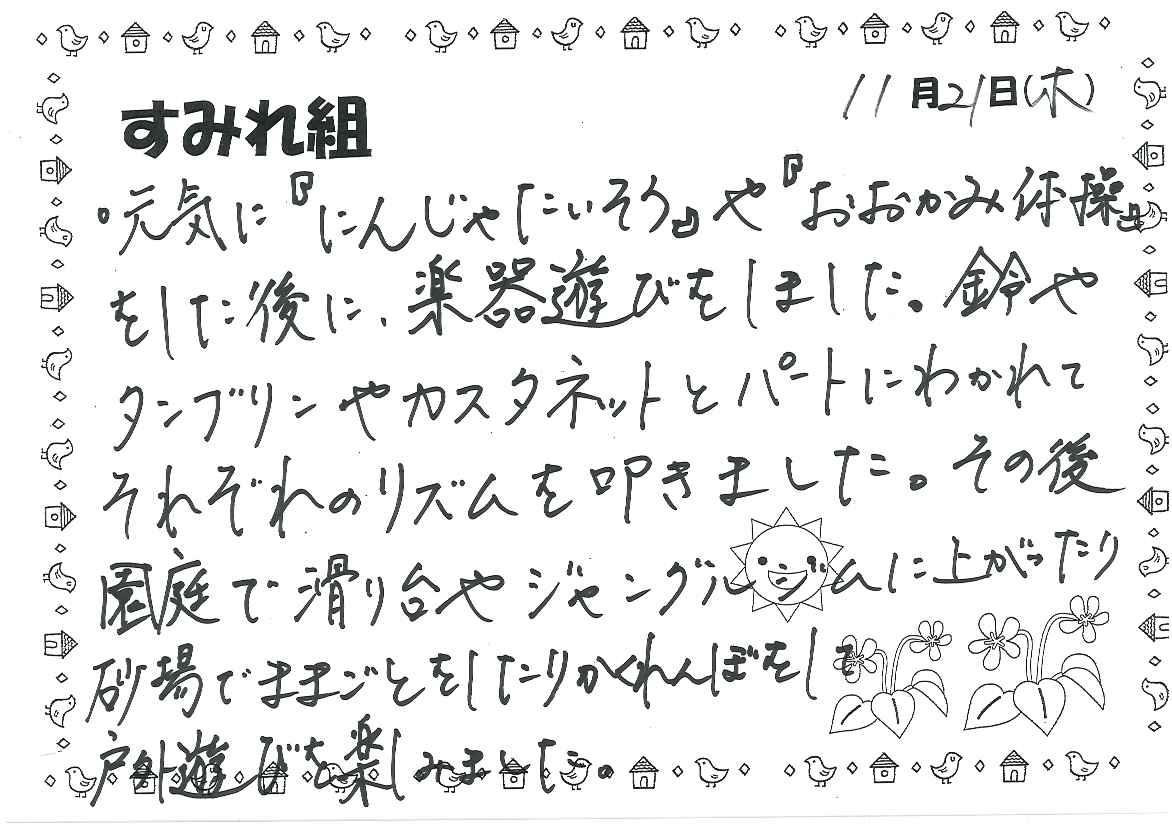 11月21日(木)
すみれ組
。元気に『にんじゃたいそう』や『おおかみ体操』
をした後に、楽器遊びをしました。鈴や
タンブリンやカスタネットとパートにわかれて
それぞれのリズムを叩きました。その後
園庭で滑り台やジャングルジムに上がったり
砂場でままごとをしたりかくれんぼをして
戸外遊びを楽しみました。